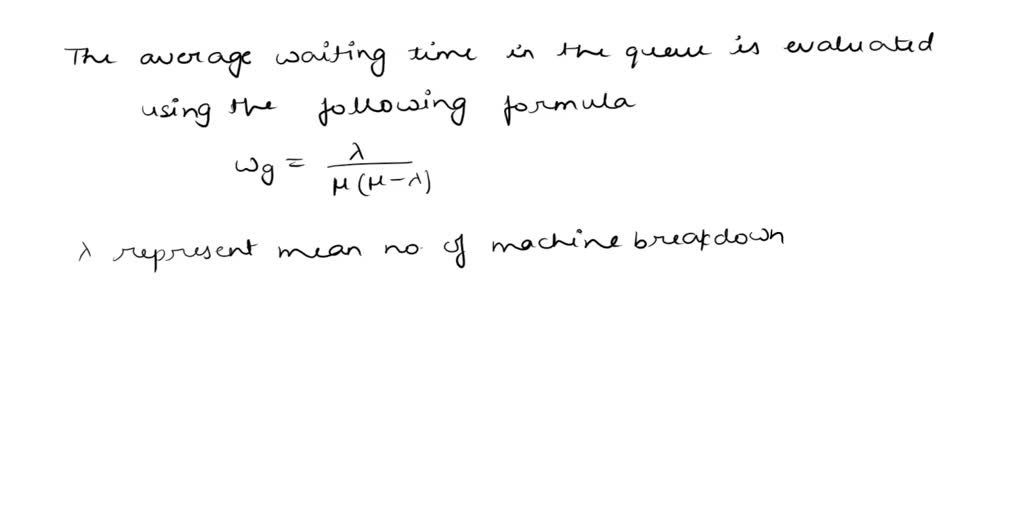 The average waiting time in the queue is evaluated
using the following formula
wg = λ / μ(μ-λ)
λ represent mean no. of machine breakdown